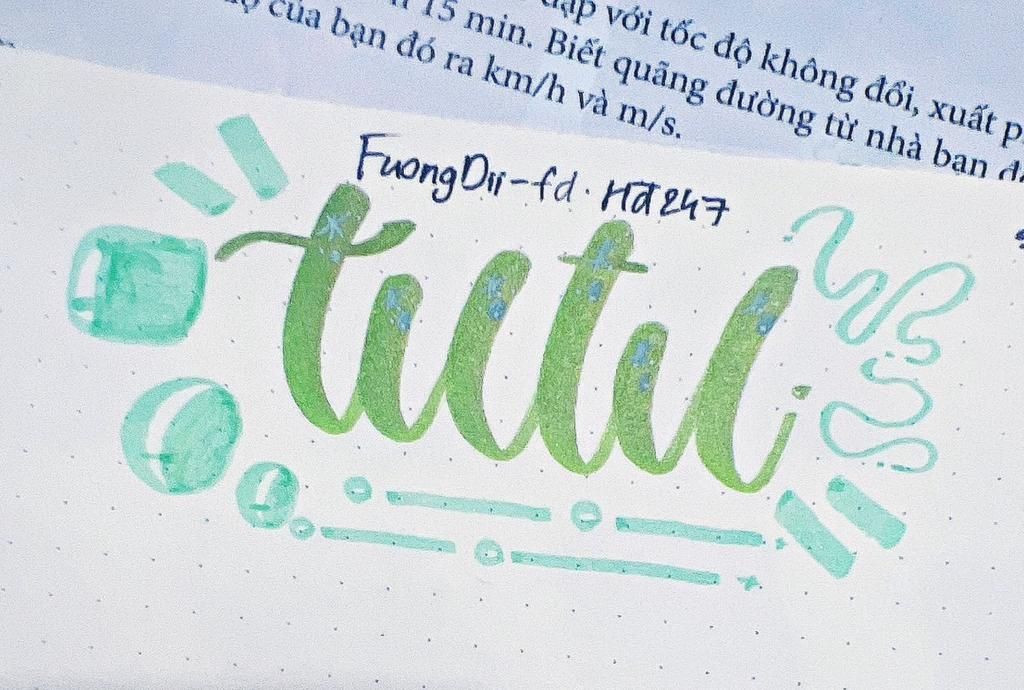 đạp với tốc độ không đổi, xuất
15 min. Biết quãng đường từ nhà bạn
của bạn đó ra km/h và m/s.
FuongDii-fd. Hd247
tutu